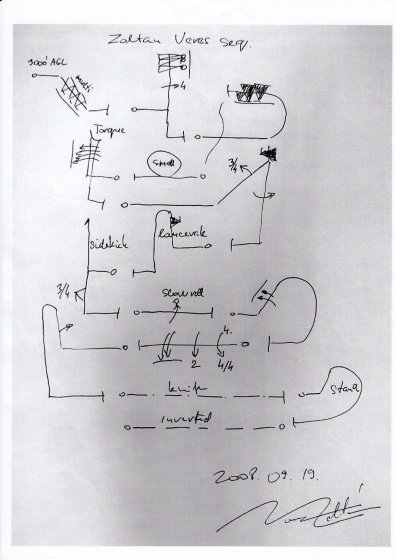 Zoltan Veres seq.
3000' AGL
multi
4
Torque
3/4
Small
sidekick
Lomcevak
3/4
slow roll
4.
2
4/4
knife
Stana
inverted
2008. 09. 19.